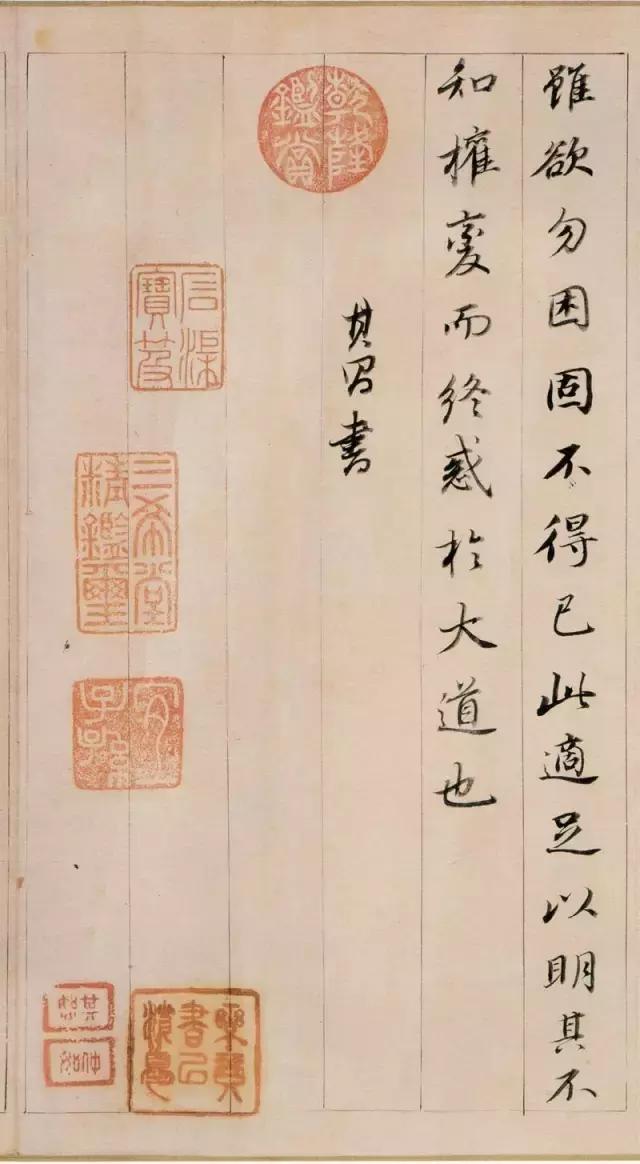 雖欲勿困固不得已此適足以明其不
知權變而終惑於大道也
其昌書
乾隆鑑賞
石渠寶笈
三希堂精鑑璽
宜子孫
樂壽堂書